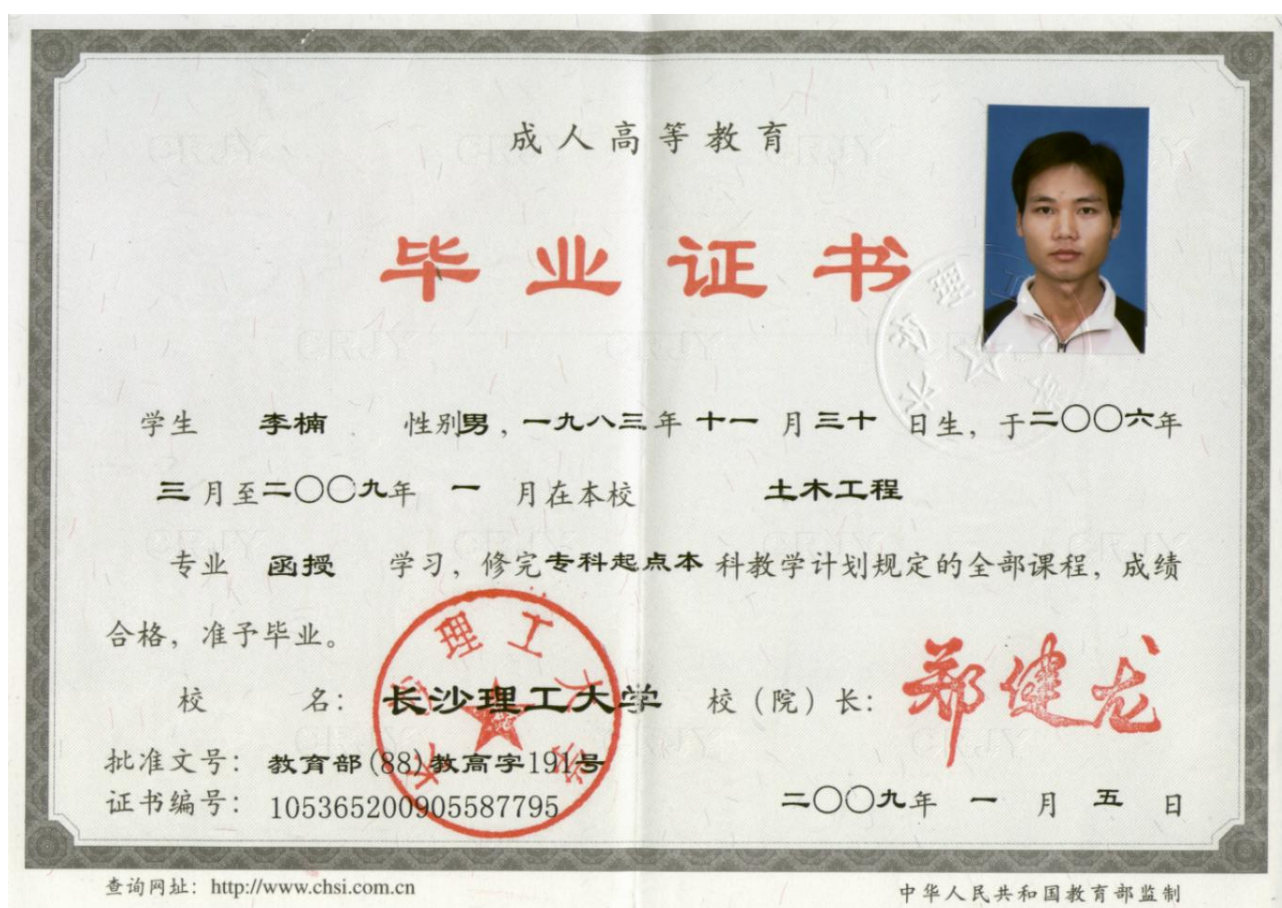 成人高等教育
毕业证书
学生 李楠 性别男，一九八三年十一月三十日生，于二〇〇六年
三月至二〇〇九年一月在本校 土木工程
专业 函授 学习，修完专科起点本科教学计划规定的全部课程，成绩
合格，准予毕业。
校 名：长沙理工大学 校（院）长：郑健龙
批准文号：教育部(88)教高字191号
证书编号：105365200905587795
二〇〇九年一月五日
长沙理工大学
长沙理工大学
查询网址：http://www.chsi.com.cn
中华人民共和国教育部监制